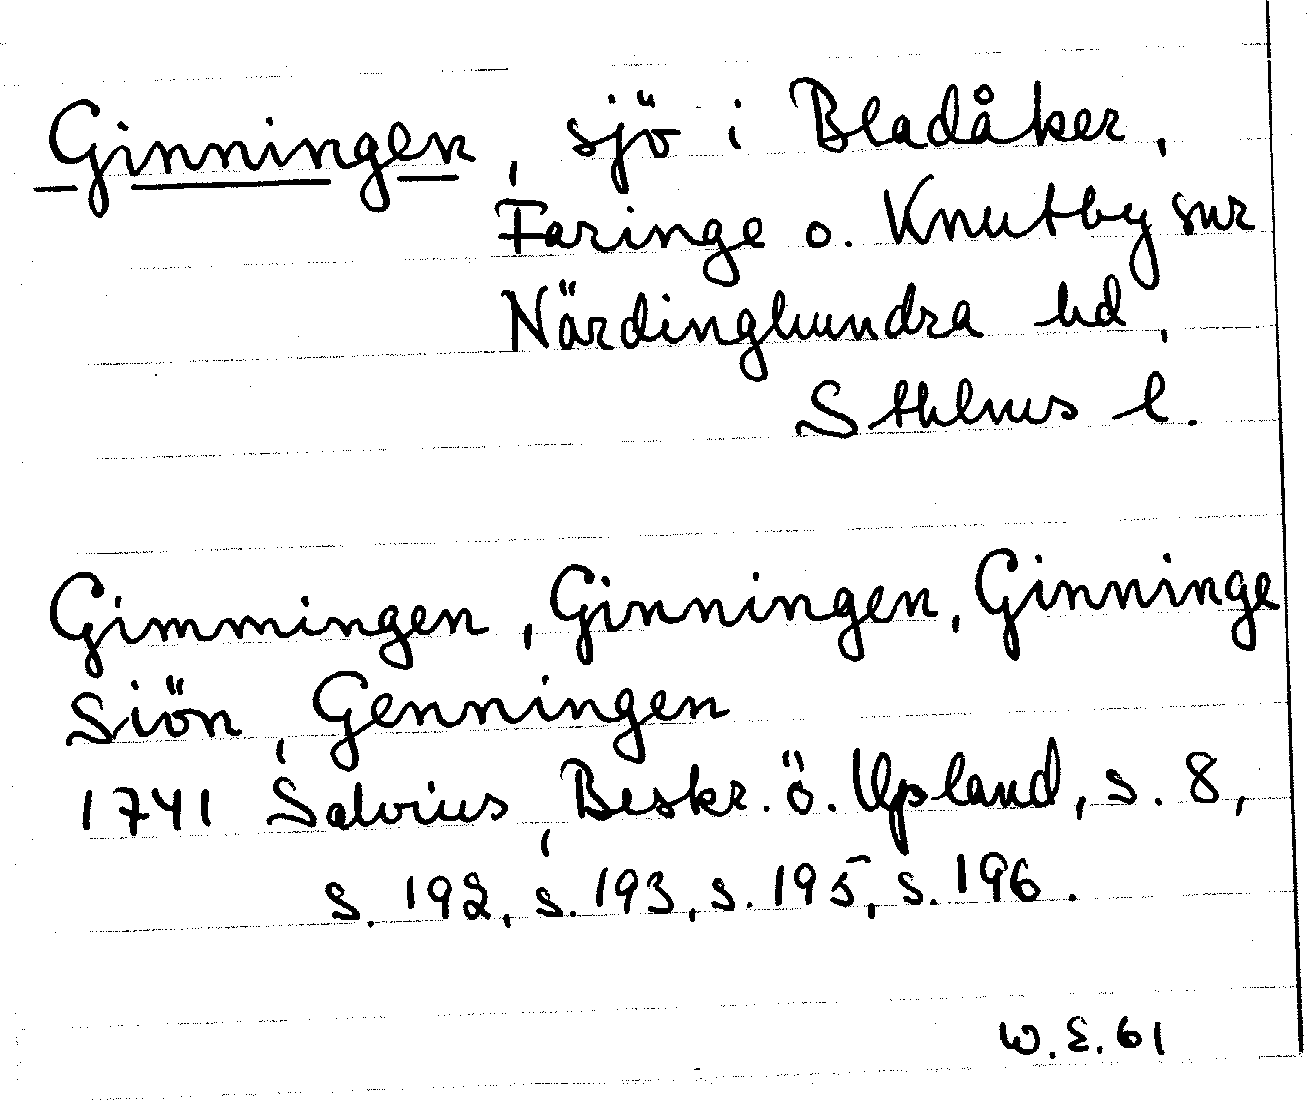 Ginningen, sjö i Bladåker,
Faringe o. Knutby snr
Närdinghundra hd,
Sthlms l.
Gimmingen, Ginningen, Ginninge
Siön, Genningen
1741 Salvius, Beskr. ö. Upland, s. 8,
s. 192, s. 193, s. 195, s. 196.
W.E. 61